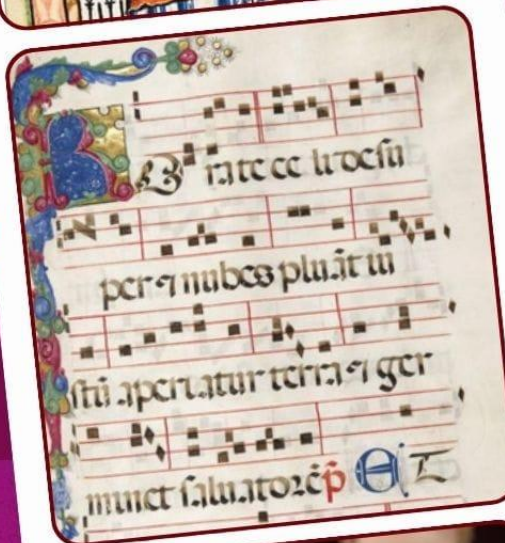 ROrate celi desu
per ⁊ nubes pluāt iu
stū aperiatur terra ⁊ ger
minet saluatorē p̄